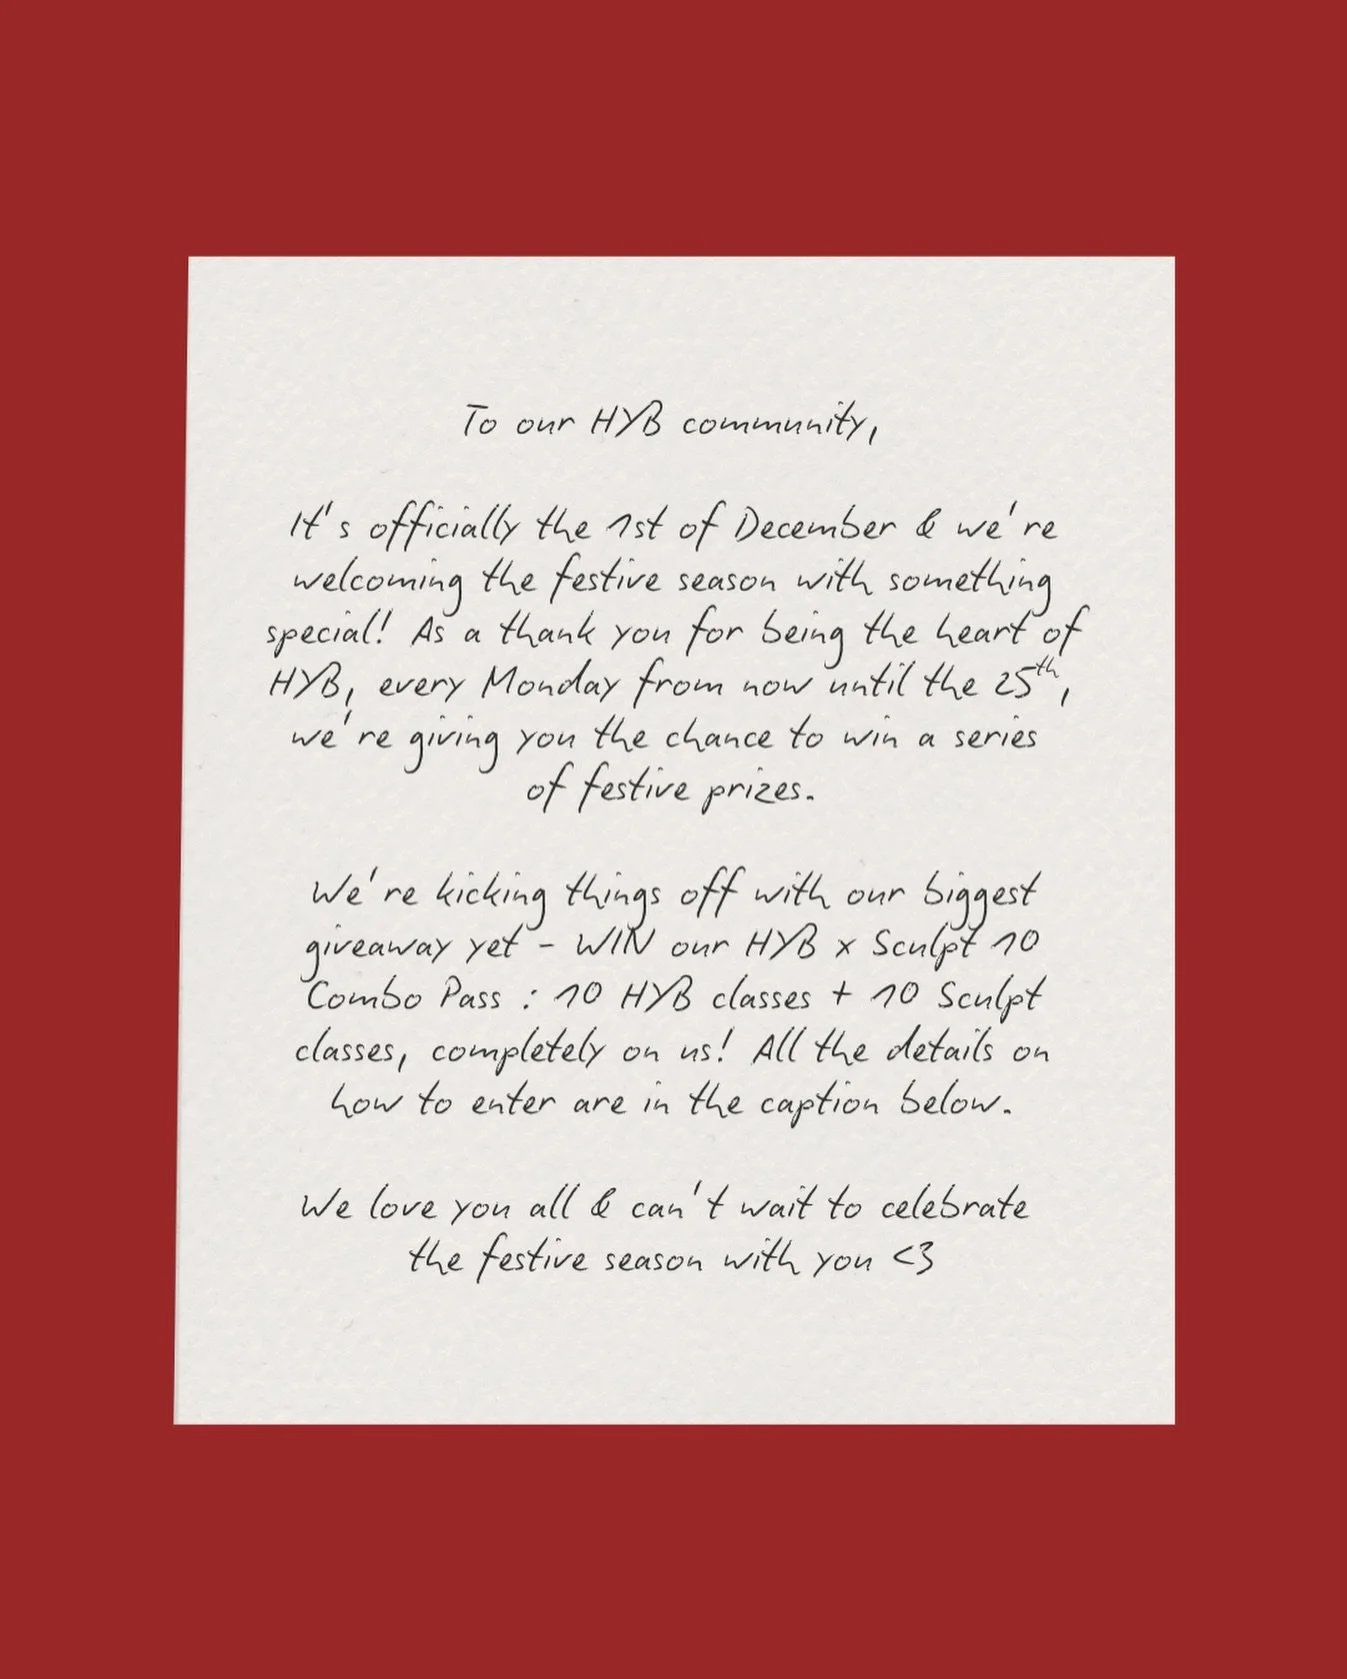 To our HYB community,
It's officially the 1st of December & we're
welcoming the festive season with something
special! As a thank you for being the heart of
HYB, every Monday from now until the 25th,
we're giving you the chance to win a series
of festive prizes.
We're kicking things off with our biggest
giveaway yet - WIN our HYB x Sculpt 10
Combo Pass : 10 HYB classes + 10 Sculpt
classes, completely on us! All the details on
how to enter are in the caption below.
We love you all & can't wait to celebrate
the festive season with you <3